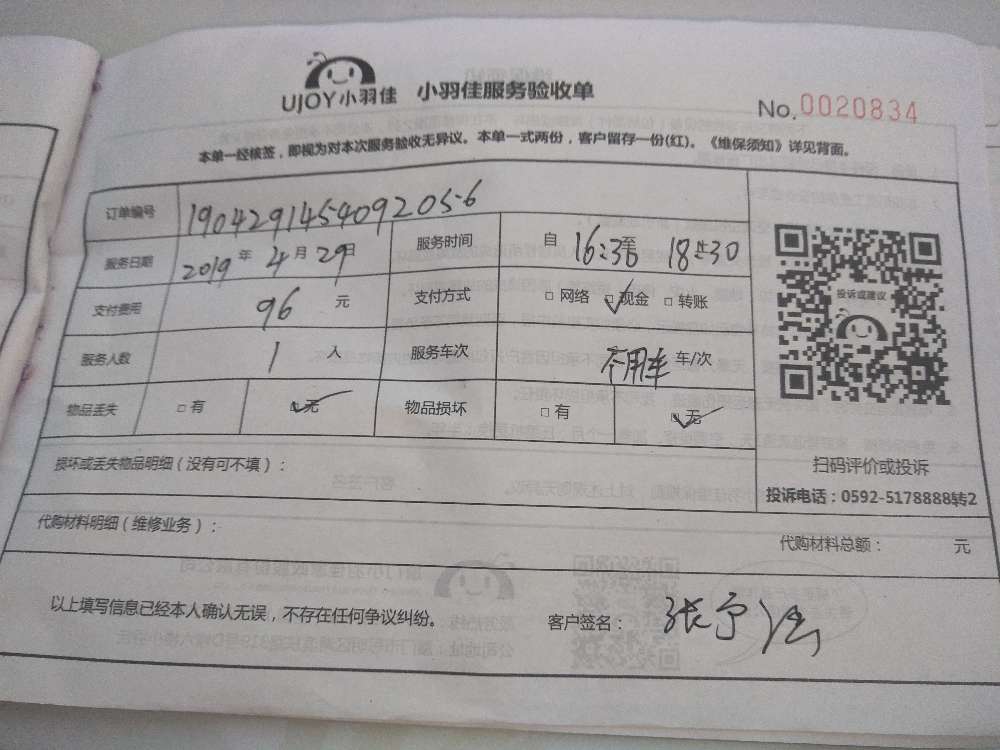 UJOY小羽佳 小羽佳服务验收单
No.0020834
本单一经核签，即视为对本次服务验收无异议。本单一式两份，客户留存一份(红)。《维保须知》详见背面。
订单编号 190429145409205-6
服务日期 2019年4月29日 服务时间 自16:30至18:30
支付费用 96元 支付方式 □网络 ☑现金 □转账
服务人数 1人 服务车次 不用车 车/次
物品丢失 □有 ☑无 物品损坏 □有 ☑无
投诉或建议
扫码评价或投诉
投诉电话：0592-5178888转2
损坏或丢失物品明细（没有可不填）：
代购材料明细（维修业务）：
代购材料总额： 元
以上填写信息已经本人确认无误，不存在任何争议纠纷。 客户签名：张